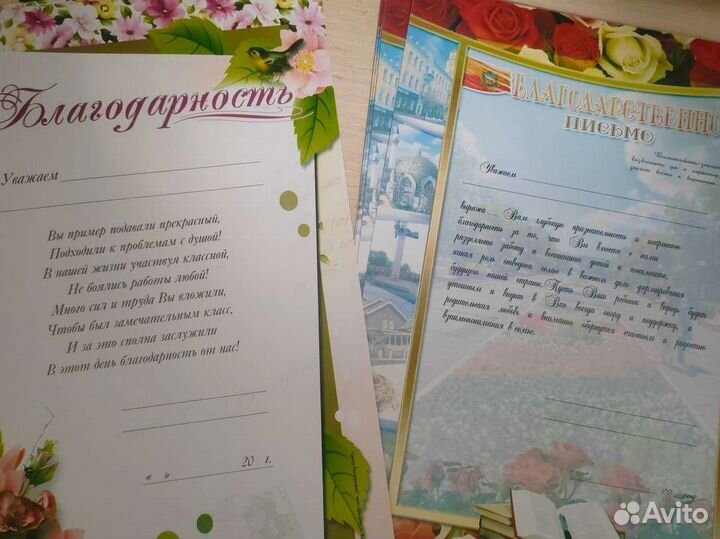 Благодарность
Уважаем
Вы пример подавали прекрасный,
Подходили к проблемам с душой!
В нашей жизни участвуя классной,
Не боялись работы любой!
Много сил и труда Вы вложили,
Чтобы был замечательным класс,
И за это сполна заслужили
В этот день благодарность от нас!
« » 20 г.
БЛАГОДАРСТВЕННО
ПИСЬМО
Уважаем
выражая Вам глубокую признательность и искреннюю
благодарность за то, что Вы вместе с нами
разделяете работу и воспитание детей и понимаете,
какая роль отведена семье в важном деле формирования
будущего нашей страны. Пусть Ваш ребенок и впредь будет
успешным и видит в Вас всегда опору и поддержку, а
родительская любовь и внимание обернутся счастьем и радостью
взаимопонимания в семье.
20
Avito